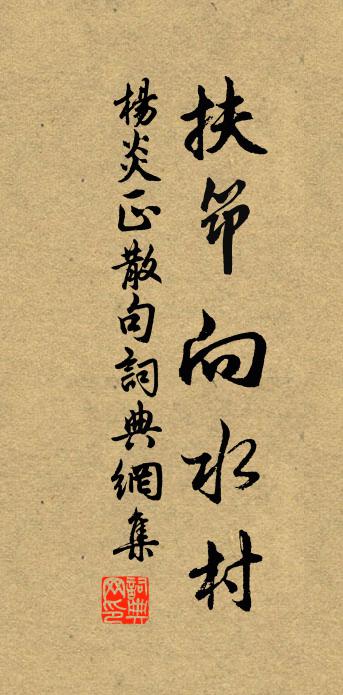 扶筇向水村
楊炎正散句詞典網集
詞典網印